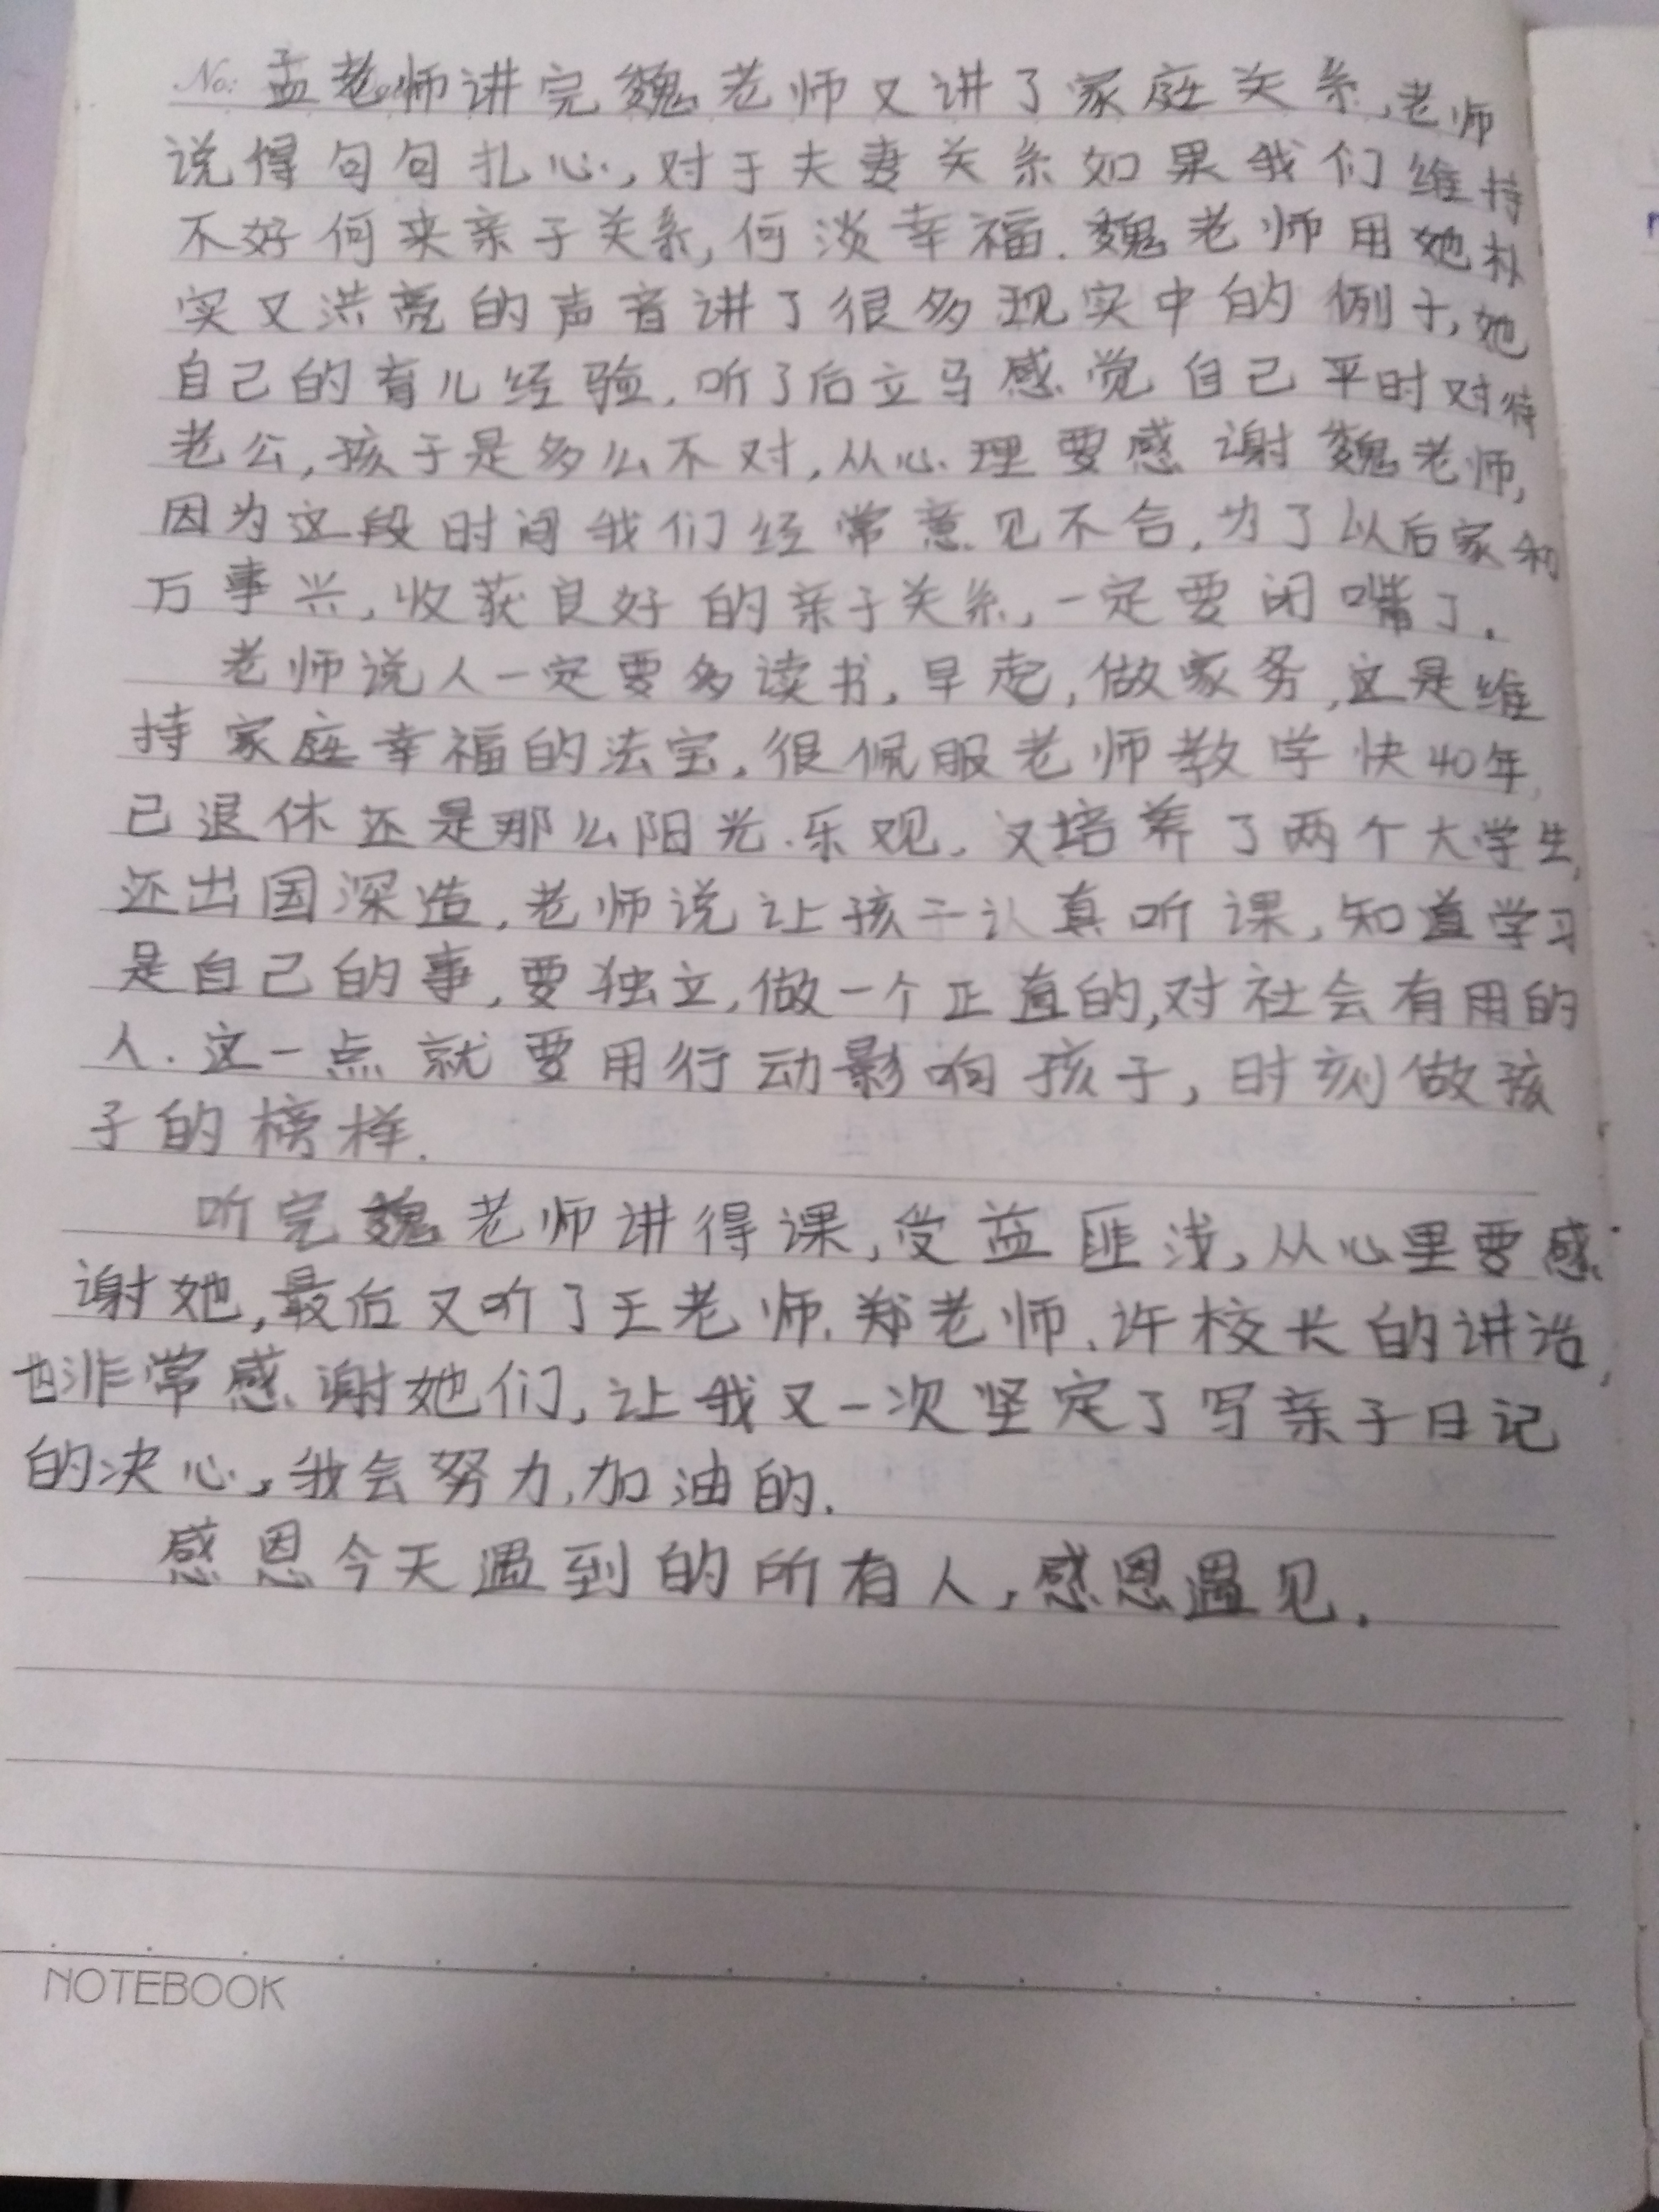 No: 孟老师讲完魏老师又讲了家庭关系,老师
说得句句扎心,对于夫妻关系如果我们维持
不好何来亲子关系,何淡幸福.魏老师用她朴
实又洪亮的声音讲了很多现实中的例子,她
自己的育儿经验.听了后立马感觉自己平时对待
老公,孩子是多么不对,从心理要感谢魏老师,
因为这段时间我们经常意见不合,为了以后家和
万事兴,收获良好的亲子关系,一定要闭嘴了.
老师说人一定要多读书,早起,做家务,这是维
持家庭幸福的法宝,很佩服老师教学快40年,
已退休还是那么阳光.乐观.又培养了两个大学生,
还出国深造,老师说让孩子认真听课,知道学习
是自己的事,要独立,做一个正直的,对社会有用的
人.这一点就要用行动影响孩子,时刻做孩
子的榜样.
听完魏老师讲得课,受益匪浅,从心里要感
谢她,最后又听了王老师.郑老师.许校长的讲话,
也非常感谢她们,让我又一次坚定了写亲子日记
的决心,我会努力,加油的.
感恩今天遇到的所有人,感恩遇见.
NOTEBOOK